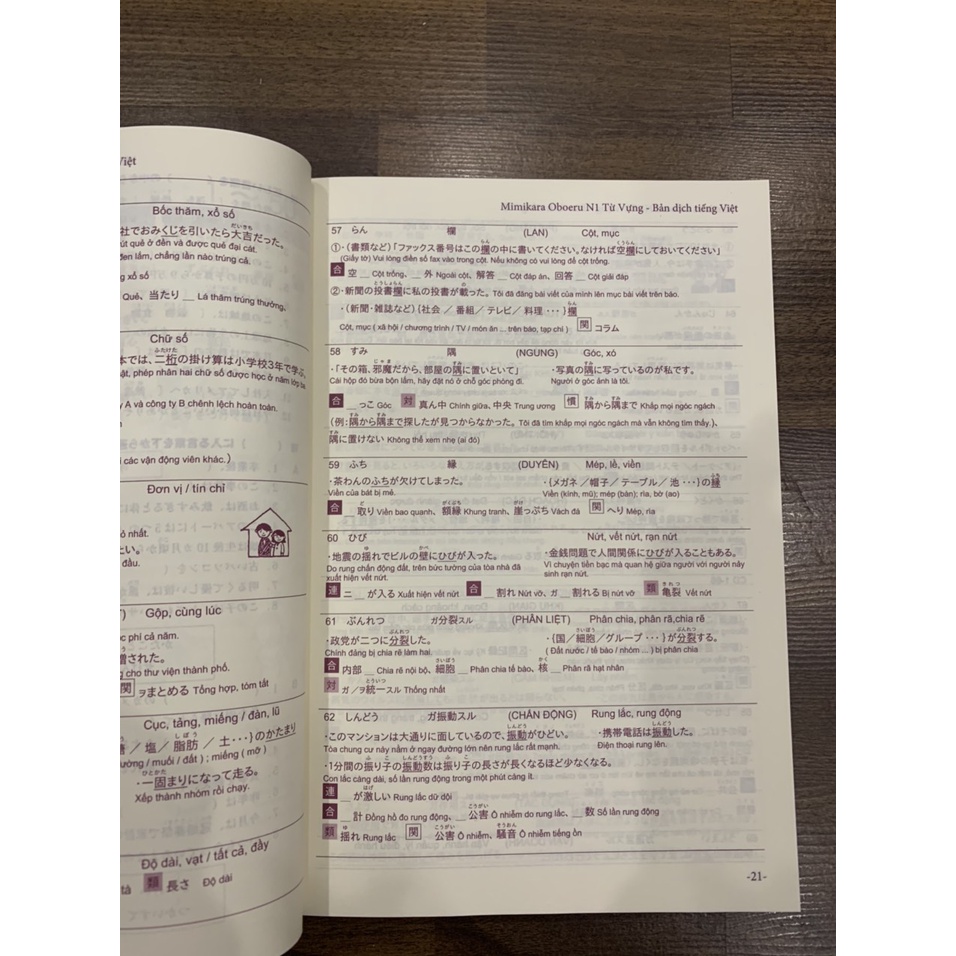 Việt
Bốc thăm, xổ số
社でおみくじを引いたら大吉だった。
út quẻ ở đền và được quẻ đại cát.
đen lắm, chẳng lần nào trúng cả.
g xổ số
Quẻ、当たり __ Lá thăm trúng thưởng,
Chữ số
本では、二桁の掛け算は小学校3年で学ぶ。
ật, phép nhân hai chữ số được học ở năm lớp ba
y A và công ty B chênh lệch hoàn toàn.
i các vận động viên khác.)
Đơn vị / tín chỉ
ỏ nhất.
たい。
đầu.
Gộp, cùng lúc
c phí cả năm.
増された。
g cho thư viện thành phố.
関 ヲまとめる Tổng hợp, tóm tắt
Cục, tảng, miếng / đàn, lũ
/ 塩 / 脂肪 / 土・・・}のかたまり
ường / muối / đất) ; miếng ( mỡ )
・一固まりになって走る。
Xếp thành nhóm rồi chạy.
Độ dài, vạt / tất cả, đầy
tà 類 長さ Độ dài
Mimikara Oboeru N1 Từ Vựng - Bản dịch tiếng Việt
57 らん 欄 (LAN) Cột, mục
①・(書類など)「ファックス番号はこの欄の中に書いてください。なければ空欄にしておいてください」
(Giấy tờ) Vui lòng điền số fax vào trong cột. Nếu không có vui lòng để cột trống.
合 空 __ Cột trống、__ 外 Ngoài cột、解答 __ Cột đáp án、回答 __ Cột giải đáp
②・新聞の投書欄に私の投書が載った。Tôi đã đăng bài viết của mình lên mục bài viết trên báo.
・(新聞・雑誌など) {社会 / 番組 / テレビ / 料理 ・・・} 欄
Cột, mục ( xã hội / chương trình / TV / món ăn ... trên báo, tạp chí ) 関 コラム
58 すみ 隅 (NGUNG) Góc, xó
・「その箱、邪魔だから、部屋の隅に置いといて」 ・写真の隅に写っているのが私です。
Cái hộp đó bừa bộn lắm, hãy đặt nó ở chỗ góc phòng đi. Người ở góc ảnh là tôi.
合 __ っこ Góc 対 真ん中 Chính giữa、中央 Trung ương 慣 隅から隅まで Khắp mọi ngóc ngách
(例:隅から隅まで探したが見つからなかった。Tôi đã tìm khắp mọi ngóc ngách mà vẫn không tìm thấy.)、
隅に置けない Không thể xem nhẹ (ai đó)
59 ふち 縁 (DUYÊN) Mép, lề, viền
・茶わんのふちが欠けてしまった。 ・{メガネ / 帽子 / テーブル / 池 ・・・}の縁
Viền của bát bị mẻ. Viền (kính, mũ); mép (bàn); rìa, bờ (ao)
合 __ 取り Viền bao quanh、額縁 Khung tranh、崖っぷち Vách đá 関 へり Mép, rìa
60 ひび Nứt, vết nứt, rạn nứt
・地震の揺れでビルの壁にひびが入った。 ・金銭問題で人間関係にひびが入ることもある。
Do rung chấn động đất, trên bức tường của tòa nhà đã Vì chuyện tiền bạc mà quan hệ giữa người với người nảy
xuất hiện vết nứt. sinh rạn nứt.
連 ニ __ が入る Xuất hiện vết nứt 合 __ 割れ Nứt vỡ、ガ __ 割れる Bị nứt vỡ 類 亀裂 Vết nứt
61 ぶんれつ ガ分裂スル (PHÂN LIỆT) Phân chia, phân rã,chia rẽ
・政党が二つに分裂した。 ・{国 / 細胞 / グループ ・・・} が分裂する。
Chính đảng bị chia rẽ làm hai. ( Đất nước / tế bào / nhóm ... ) bị phân chia
合 内部 __ Chia rẽ nội bộ、細胞 __ Phân chia tế bào、核 __ Phân rã hạt nhân
対 ガ / ヲ統一スル Thống nhất
62 しんどう ガ振動スル (CHẤN ĐỘNG) Rung lắc, rung động
・このマンションは大通りに面しているので、振動がひどい。 ・携帯電話は振動した。
Tòa chung cư này nằm ở ngay đường lớn nên rung lắc rất mạnh. Điện thoại rung lên.
・1分間の振り子の振動数は振り子の長さが長くなるほど少なくなる。
Con lắc càng dài, số lần rung động trong một phút càng ít.
連 __ が激しい Rung lắc dữ dội
合 __ 計 Đồng hồ đo rung động、__ 公害 Ô nhiễm do rung lắc、__ 数 Số lần rung động
類 揺れ Rung lắc 関 公害 Ô nhiễm、騒音 Ô nhiễm tiếng ồn
-21-